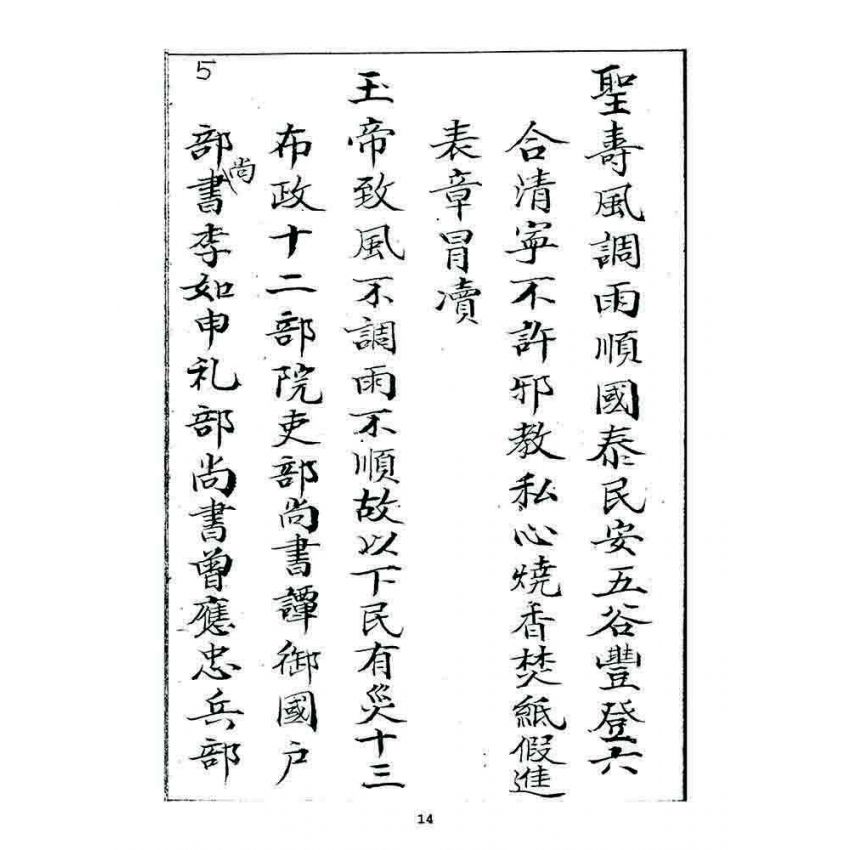 聖壽風調雨順國泰民安五谷豐登六
合清寧不許邪教私心燒香焚紙假進
表章冒瀆
玉帝致風不調雨不順故以下民有災十三
布政十二部院吏部尚書譚御國户
部尚書李如申礼部尚書曾應忠兵部
5
14